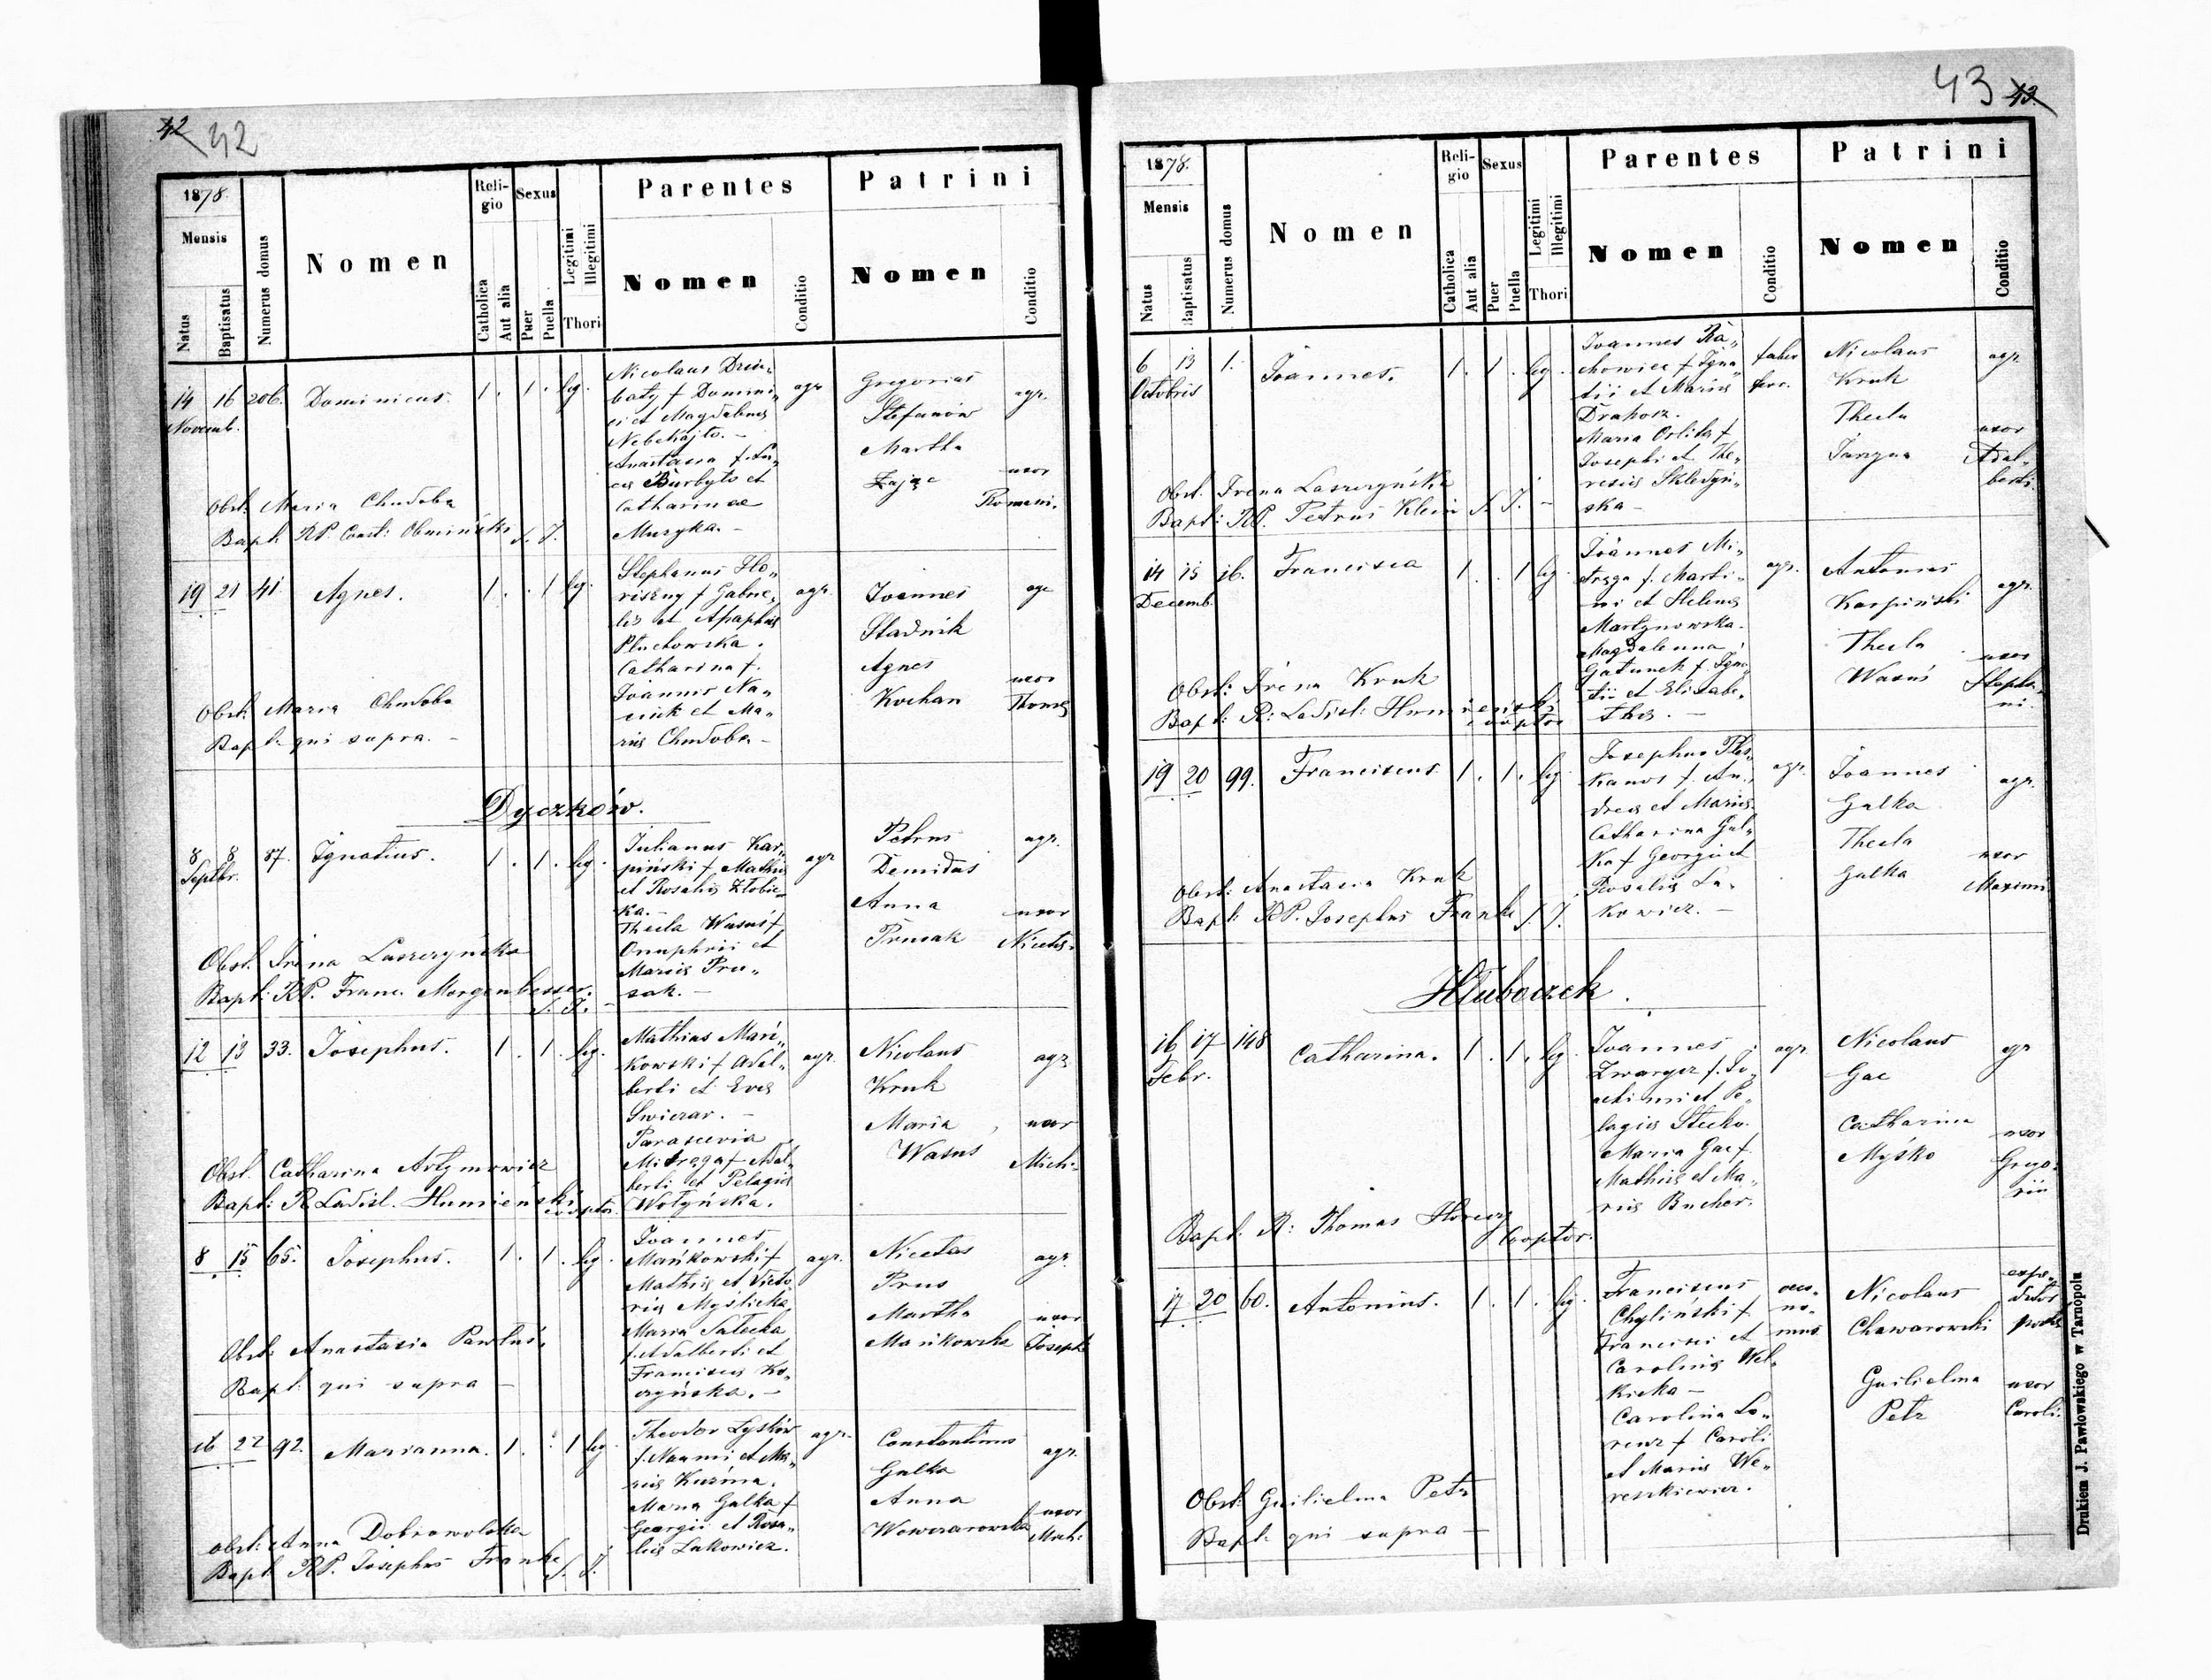 42 42
1878.
Mensis
Natus
Baptisatus
Numerus domus
Nomen
Religio
Catholica
Aut alia
Sexus
Puer
Puella
Legitimi
Illegitimi
Thori
Parentes
Nomen
Conditio
Patrini
Nomen
Conditio
14 16 206. Dominicus. 1. 1. leg.
Novemb.
Nicolaus
baty f Domini-
ci et Magdalenæ
Nebekajto. -
Anastasia f.
Burbyło et
Catharinae
Muzyka. -
agr.
Gregorius
Stefanów
agr.
Martha
Zając
uxor
Romani.
Obst. Maria Chudoba
Bapt. RP. Const: Obmiński S. J.
19 21 41. Agnes. 1. . 1 leg.
Stephanus Ho-
riszny f Gabrie-
lis et Agaphiæ
Pluchowska.
Catharina f.
Joannis Na-
et Ma-
riæ Chudoba -
agr.
Joannes
Stadnik
agr
Agnes
Kochan
uxor
Thomæ
Obst: Maria Chudoba
Bapt. qui supra. -
Dyczków.
8 8 87. Ignatius. 1. 1. leg.
Septbr.
Julianus Kar-
piński f Mathiæ
et Rosaliæ Złobic-
ka. -
Thecla Wasuś f.
Onuphrii et
Mariæ Pru-
sak. -
agr
Petrus
Demidas
agr.
Anna
Prusak
uxor
Nicetæ.
Obst. Irena Laszczyńska
Bapt: RP. Franc. Morgenbesser. S. J. -
12 13 33. Josephus. 1. 1. leg.
Mathias Mań-
kowski f Adal-
berti et Evæ
Swierar. -
Parascevia
Mitręga f Adal-
berti et Pelagiæ
Wołyńska.
agr.
Nicolaus
Kruk
agr.
Maria
Wasuś
uxor
Mich:
Obst. Catharina Artymowicz
Bapt: R. Ladisl. Humieński cooptor.
8 15 65. Josephus. 1. 1. leg.
Joannes
Mańkowski f
Mathiæ et Victo-
riæ Myślicka
Maria Sałecka
f. Adalberti et
Franciscæ Ko-
czyńska. -
agr.
Nicetas
Prus
agr.
Martha
Mańkowska
uxor
Joseph
Obst: Anastasia Pawluś.
Bapt. qui supra -
16 22 92. Marianna. 1. . 1 leg.
Theodor Lysków
f. Naumi et Ma-
riæ Kuźma.
Maria Gałka f
Georgii et Rosa-
liæ Lakowicz.
agr.
Constantinus
Gałka
agr.
Anna
Wowezarowska
uxor
Mich:
Obst: Anna Dobrowolska
Bapt. RP. Josephus Franke S. J.
43 43
1878.
Mensis
Natus
Baptisatus
Numerus domus
Nomen
Religio
Catholica
Aut alia
Sexus
Puer
Puella
Legitimi
Illegitimi
Thori
Parentes
Nomen
Conditio
Patrini
Nomen
Conditio
6 13 1. Joannes. 1. 1. leg.
Octobris
Joannes Ra-
chowiec f Igna-
tii et Mariæ
Drahosz.
Maria Orlita f
Josephi et The-
resiæ Skledyń-
ska -
faber
ferr.
Nicolaus
Kruk
agr
Thecla
Jaryna
uxor
Adal-
berti.
Obst. Irena Laszczyńska
Bapt: RP. Petrus Klein S. J. -
14 15 16. Francisca 1. . 1 leg.
Decemb.
Joannes Mi-
tręga f. Marti-
ni et Helenæ
Martynowska.
Magdalenna
Gatunek f. Igna-
tii et Elisabe-
thæ. -
agr.
Antonius
Karpiński
agr.
Thecla
Wasuś
uxor
Stepha-
ni.
Obst: Irena Kruk
Bapt: R: Ladisl: Humieński cooptor
19 20 99. Franciscus 1. 1. leg.
Josephus Ples-
kanos f. An-
dreæ et Mariæ.
Catharina Gał-
ka f Georgii et
Rosaliæ La-
kowicz. -
agr.
Joannes
Gałka
agr.
Thecla
Gałka
uxor
Maximi.
Obst: Anastasia Kruk
Bapt: RP. Josephus Franke S. J.
Hłuboczek.
16 17 148 Catharina. 1. 1. leg.
Febr.
Joannes
Zwarycz f. Jo-
achimi et Pe-
lagiæ Stecko.
Maria Gac f.
Mathiæ et Ma-
riæ Bucher.
agr.
Nicolaus
Gac
agr
Catharina
Myśko
uxor
Grego-
rii
Bapt. R: Thomas Cooptor.
17 20 60. Antonius. 1. 1. leg.
Franciscus
Chyliński f
Francisci et
Carolinæ Wel-
kicka -
Carolina Lo-
renz f Caroli
et Mariæ We-
reszkiewicz.
oeco-
no-
mus
Nicolaus
Chawarowski
expe-
ditor
Guilielma
Petz
uxor
Caroli.
Obst: Guilielma Petz
Bapt: qui supra -
Drukiem J. Pawłowskiego w Tarnopolu